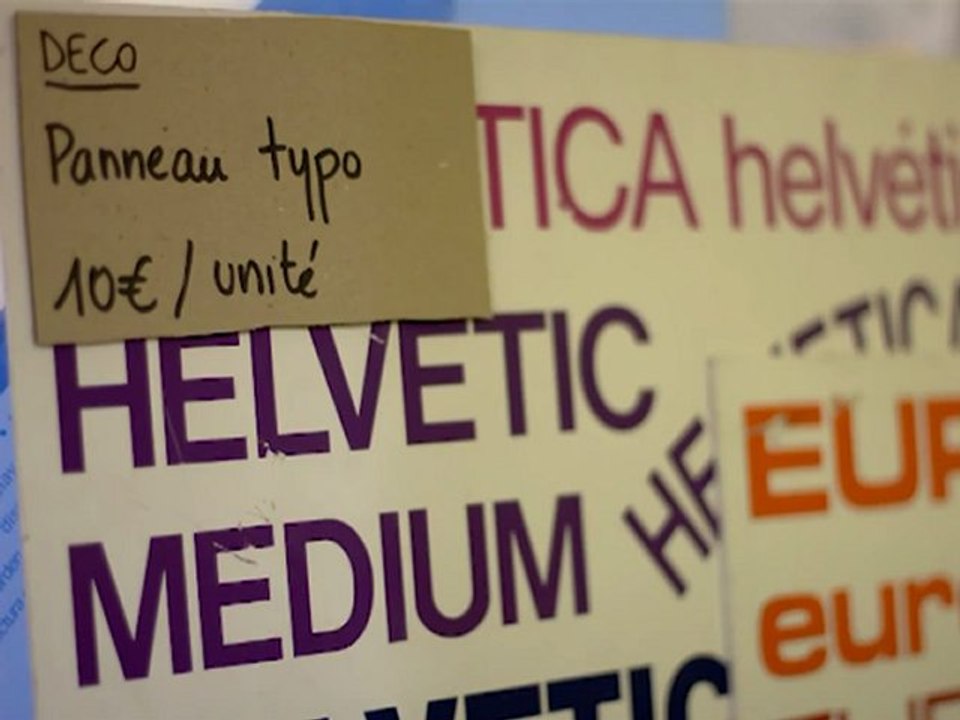 DECO
Panneau typo
10€ / unité
TICA helvéti
HELVETIC
TICA
MEDIUM
EUR
eur